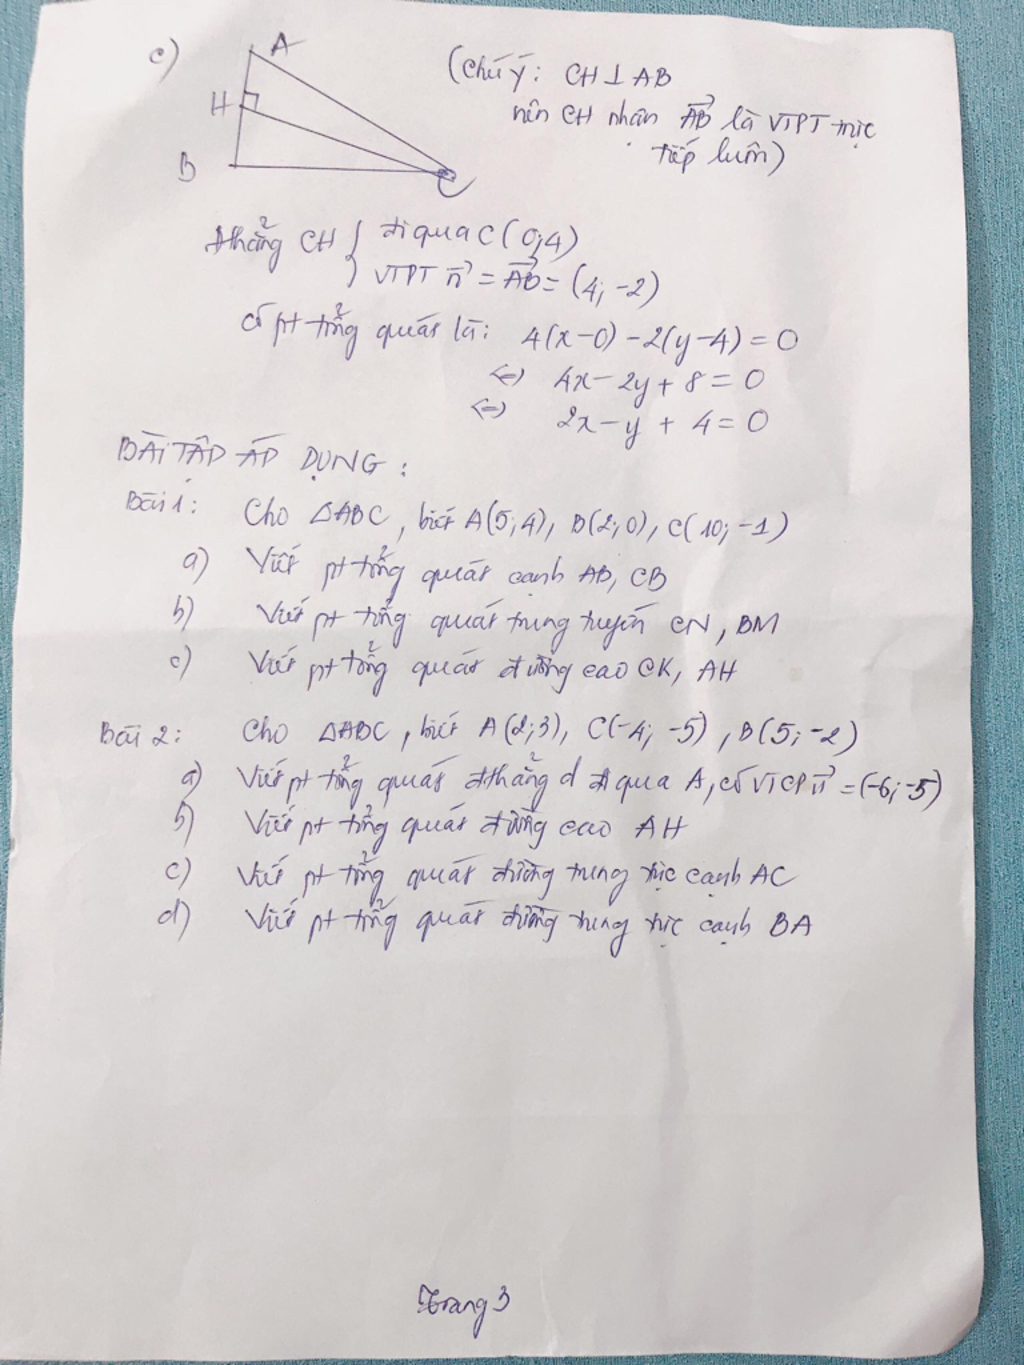 c)
A
H
B
C
(Chú ý: CH⊥AB
nên CH nhận AB⃗ là VTPT trực
tiếp luôn)
đthẳng CH { đi qua C(0;4)
VTPT n⃗ = AB⃗ = (4; -2)
có pt tổng quát là: 4(x-0) -2(y-4) = 0
⇔ 4x - 2y + 8 = 0
⇔ 2x - y + 4 = 0
BÀI TẬP ÁP DỤNG:
Bài 1: Cho △ABC, biết A(5;4), B(2;0), C(10;-1)
a) Viết pt tổng quát cạnh AB, CB
b) Viết pt tổng quát trung tuyến CN, BM
c) Viết pt tổng quát đường cao CK, AH
Bài 2: Cho △ABC, biết A(2;3), C(-4; -5), B(5; -2)
a) Viết pt tổng quát đthẳng d đi qua A, có VTCP u⃗ = (-6; -5)
b) Viết pt tổng quát đường cao AH
c) Viết pt tổng quát đường trung trực cạnh AC
d) Viết pt tổng quát đường trung trực cạnh BA
Trang 3